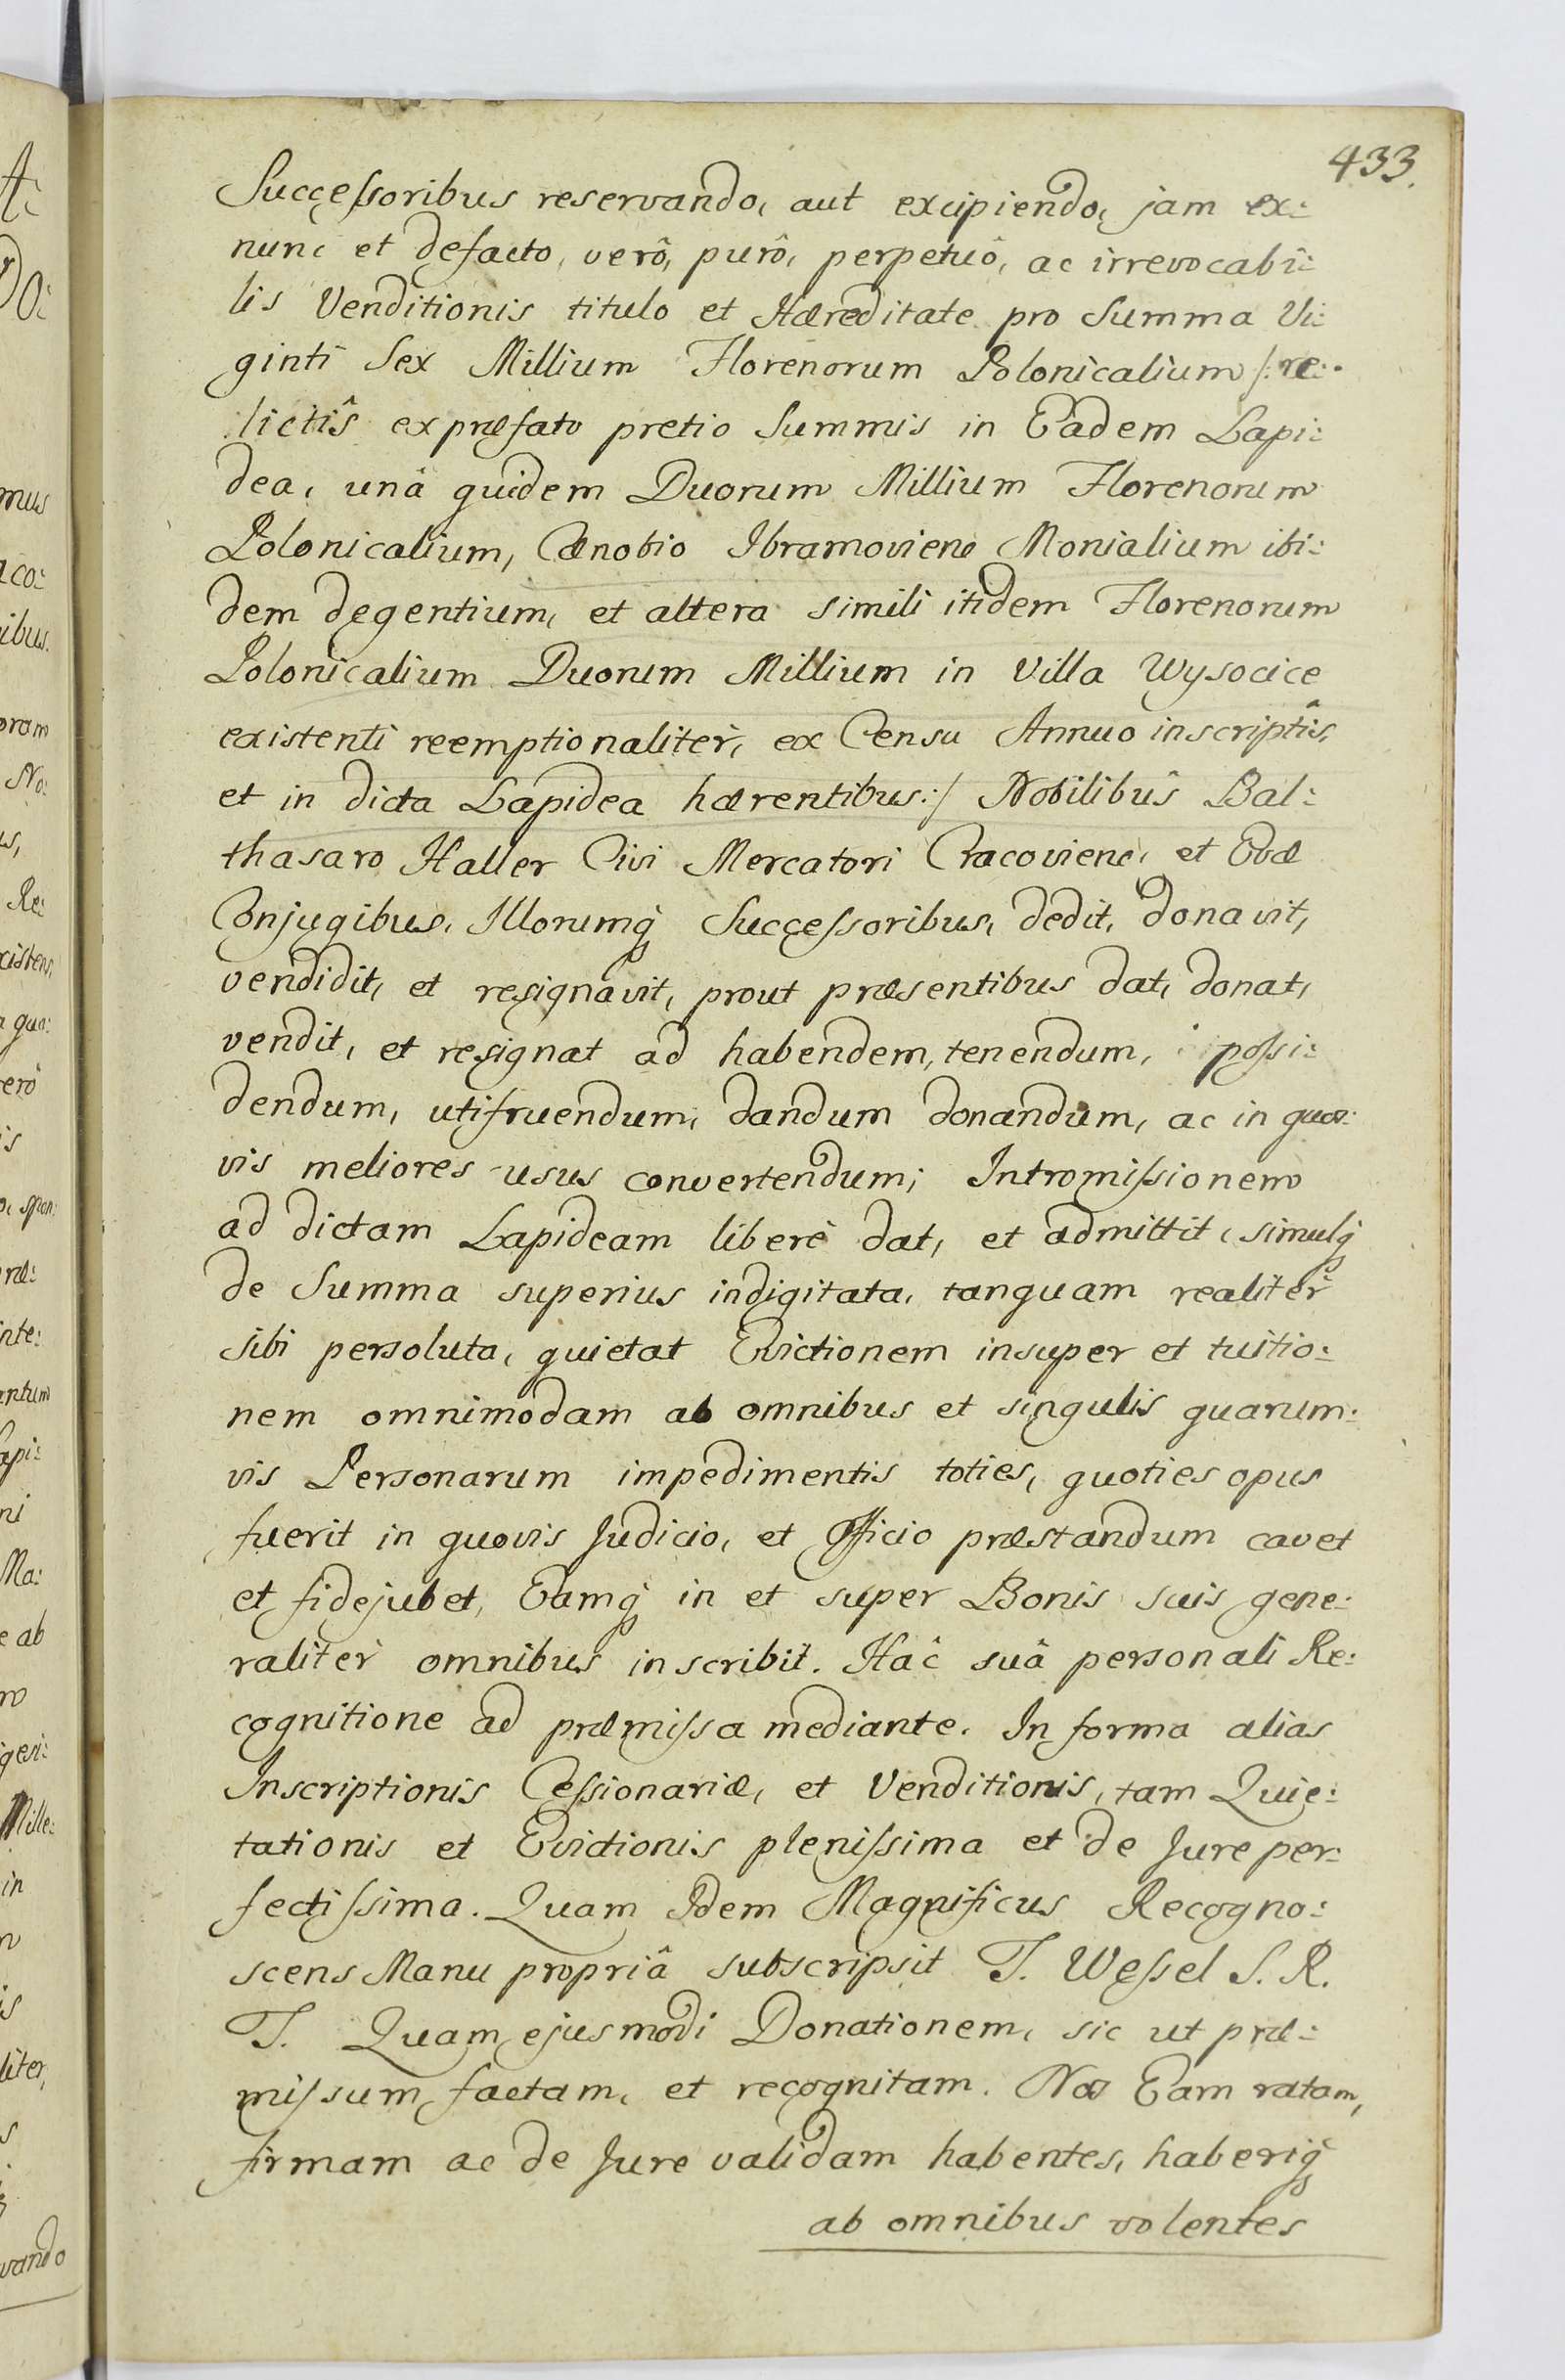 433.
Successoribus reservando, aut excipiendo, jam ex:
nunc et defacto, verô, purô, perpetuô, ac irrevocabi:
lis Venditionis titulo et Hæreditate pro Summa Vi:
ginti Sex Millium Florenorum Polonicalium /: re:
lictîs ex præfato pretio Summis in Eadem Lapi:
dea, unâ quidem Duorum Millium Florenorum
Polonicalium, Cænobio Ibramoviens Monialium ibi:
dem degentium, et altera simili itidem Florenorum
Polonicalium Duorum Millium in Villa Wysocice
existenti reemptionaliter, ex Censu Annuo inscriptîs,
et in dicta Lapidea hærentibus :/ Nobilibûs Bal:
thasaro Haller Civi Mercatori Cracoviens, et Evæ
Conjugibus, Illorumq́ Successoribus, dedit, donavit,
vendidit, et resignavit, prout præsentibus dat, donat,
vendit, et resignat ad habendem, tenendum, possi:
dendum, utifruendum, dandum donandum, ac in quos:
vis meliores usus convertendum; Intromissionem
ad dictam Lapideam liberè dat, et admittit, simulq́
de Summa superius indigitata, tanquam realitèr
sibi persoluta, quietat Evictionem insuper et tuitio:
nem omnimodam ab omnibus et singulis quarum:
vis Personarum impedimentis toties, quoties opus
fuerit in quovis Judicio, et Officio præstandum cavet
et fidejubet, Eamq́ in et super Bonis suis gene:
raliter omnibus inscribit. Hâc suâ personali Re:
cognitione ad præmissa mediante. In forma alias
Inscriptionis Cessionariæ, et Venditionis, tam Quie:
tationis et Evictionis plenissima et de Jure per:
fectissima. Quam Idem Magnificus Recogno:
scens Manu propriâ subscripsit T. Wessel S. R.
T. Quam ejusmodi Donationem, sic ut præ:
missum factam, et recognitam. Nos Eam ratam,
firmam ac de Jure validam habentes, haberiq́
ab omnibus volentes